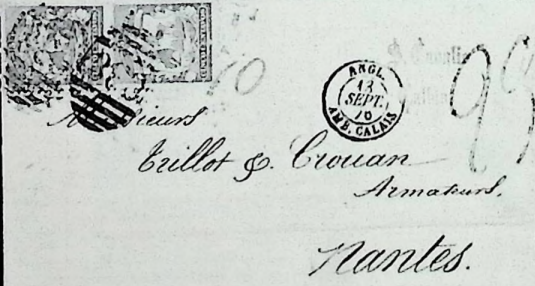 ANGL.
13
SEPT.
70
AMB. CALAIS
Messieurs
Trillot & Crouan
Armateurs.
Nantes.